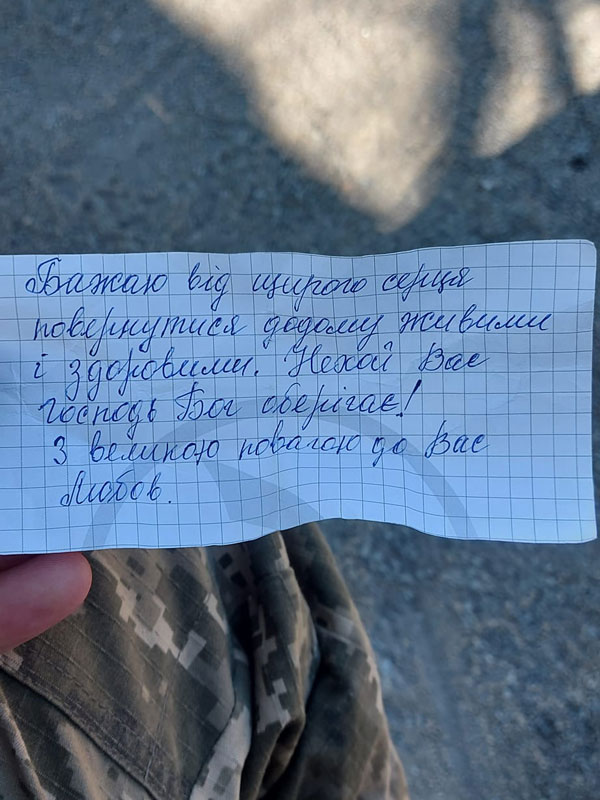 Бажаю від щирого серця
повернутися додому живими
і здоровими. Нехай Вас
Господь Бог оберігає!
З великою повагою до Вас
Любов.